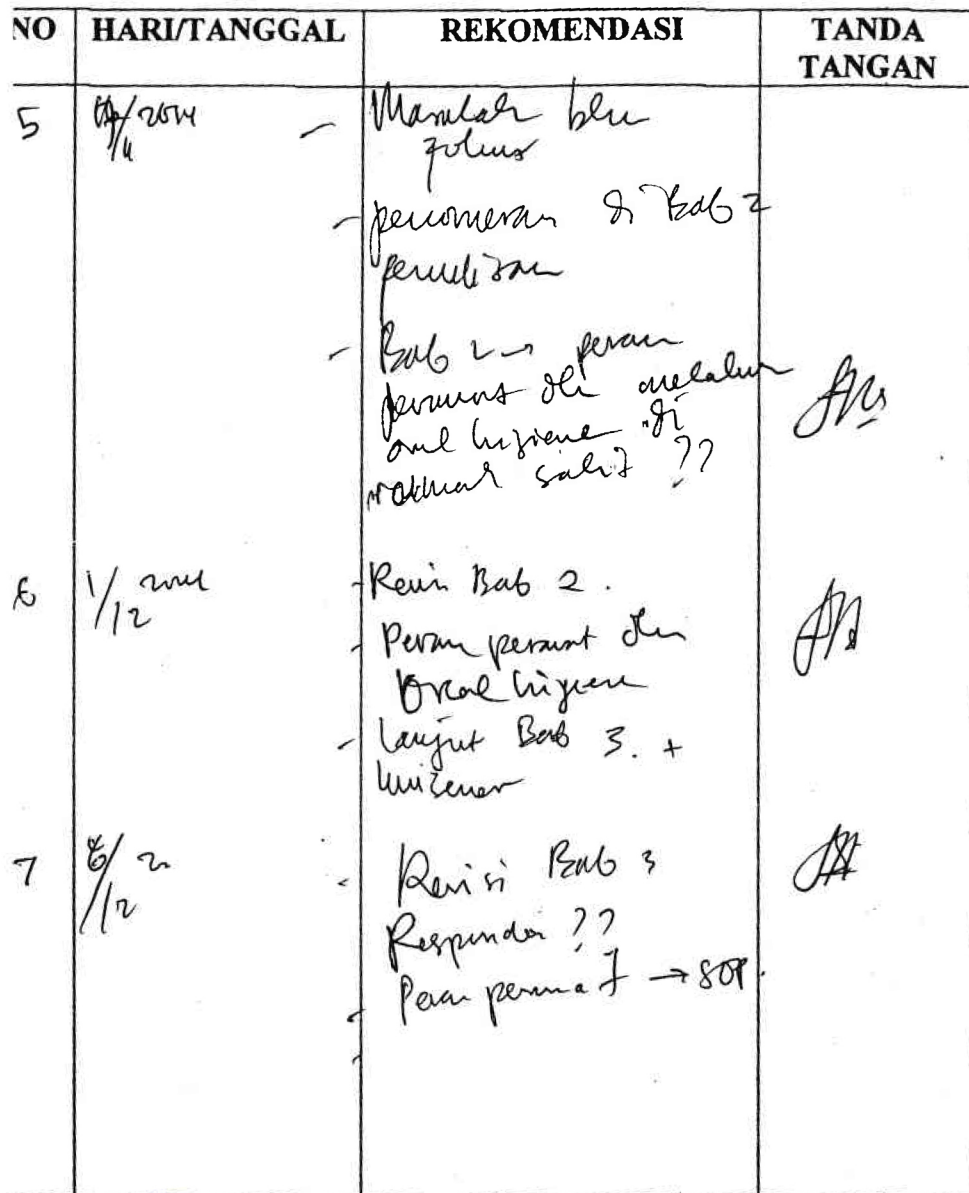 NO HARI/TANGGAL REKOMENDASI TANDA
TANGAN
5 /2014 - Masalah blm
fokus
- penomeran di Bab 2
penulisan
- Bab 2 → peran
perawat dlm melalui
oral higiene di
rumah sakit ??
6 1/12 2014 - Revisi Bab 2.
- Peran perawat dlm
oral higiene
- lanjut Bab 3. +
kuisener
7 /12 - Revisi Bab 3
Responden ??
Peran perawat → SOP.